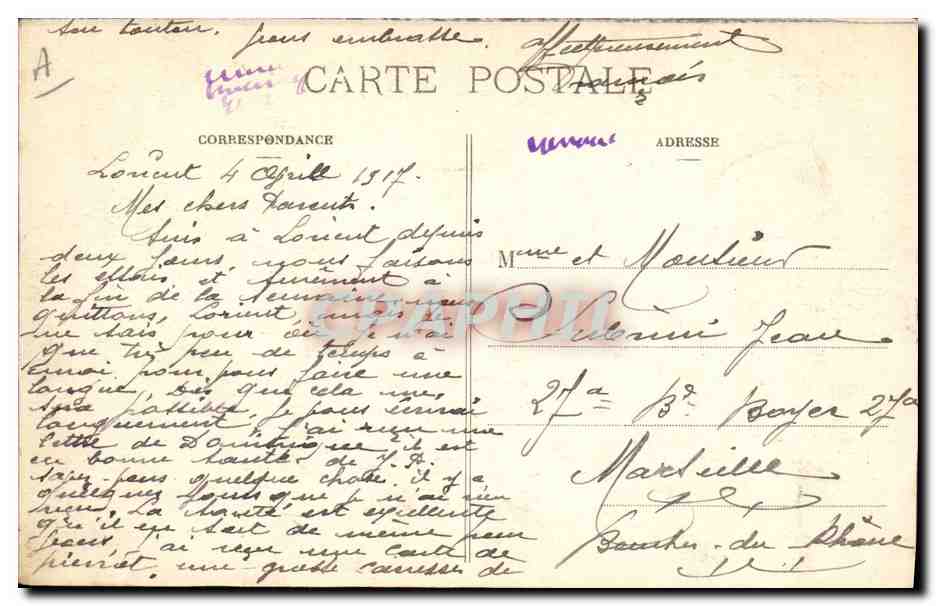 son tonton. vous embrasse. affectueusement
A
CARTE POSTALE
CORRESPONDANCE
ADRESSE
Lorient 4 Avril 1917.
Mes chers Parents.
Suis à Lorient depuis
deux jours nous faisons
les essais et sûrement à
la fin de la semaine nous
quittons Lorient mais je
ne sais pour où. Je n'ai
que très peu de temps à
moi pour vous faire une
longue, Dès que cela me
sera possible. Je vous écrirai
longuement. J'ai reçu une
lettre de Dominique il est
en bonne santé. de
savez-vous quelque chose. il y a
quelques jours que je n'ai rien
reçu. La santé est excellente
qu'il en soit de même pour
vous j'ai reçu une carte de
pierrot, une grosse caresse de
Mme et Monsieur
Jean
27a Bd Boyer 27a
Marseille
Bouches-du-Rhône
CPAPHIL